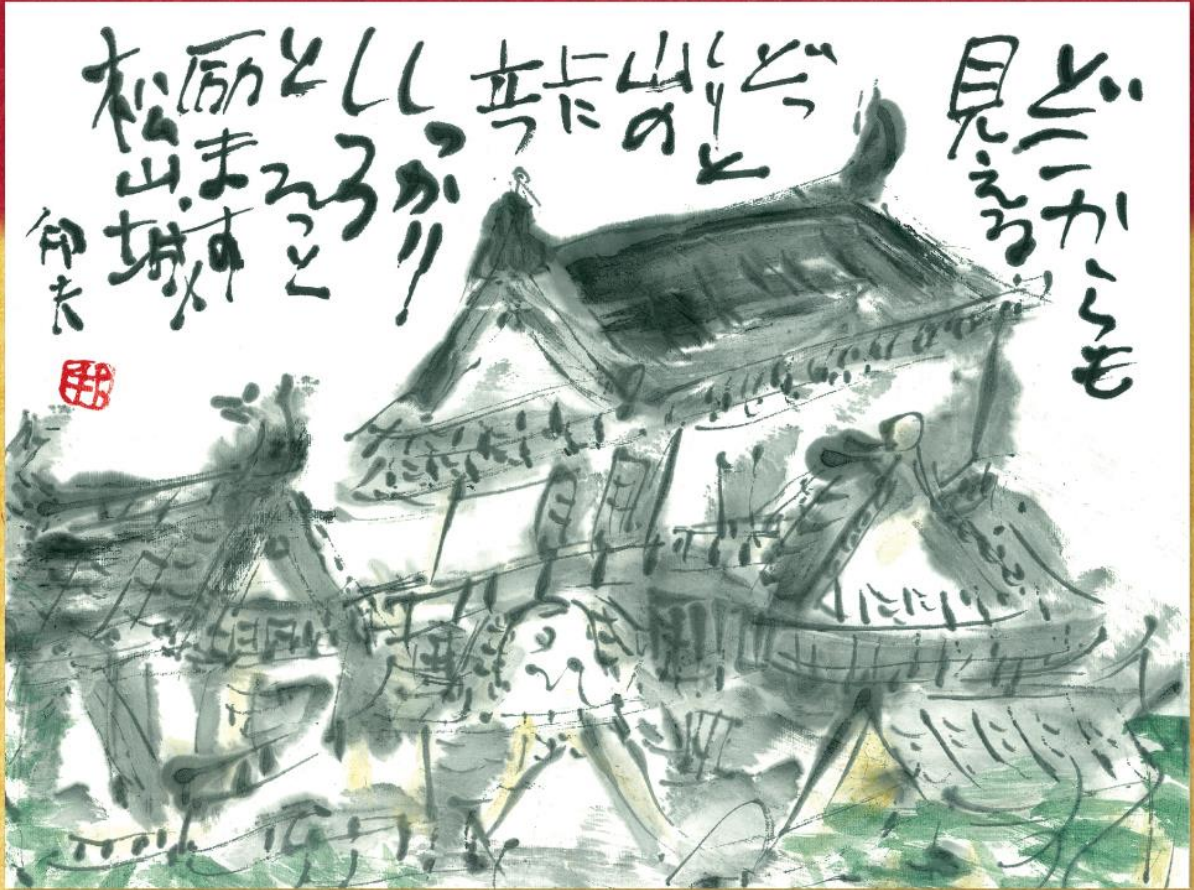 どこからも
見える
どっ
しりと
山の
上に
立つ
しっかり
しろ
とそっと
励ます
松山城
邦夫